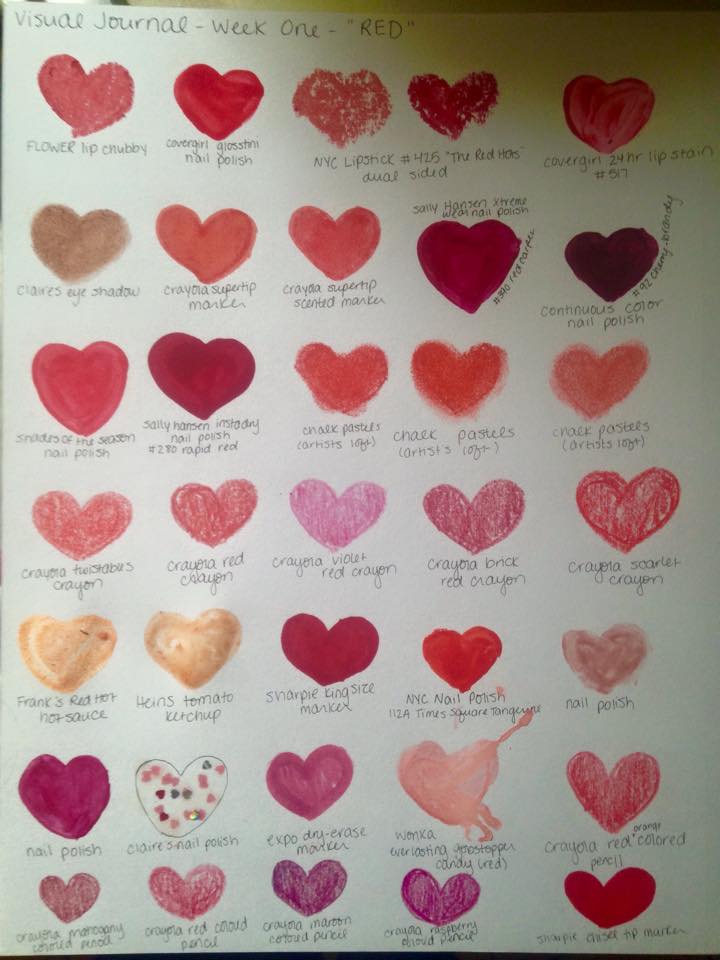 Visual Journal - Week One - "RED"
FLOWER lip chubby
covergirl glosstini
nail polish
NYC Lipstick #425 "The Red Hots"
dual sided
covergirl 24 hr lip stain
#517
Claires eye shadow
crayola supertip
marker
crayola supertip
scented marker
Sally Hansen Xtreme
wear nail polish
#390 red carpet
continuous color
nail polish
#92 cherry-brandy
shades of the season
nail polish
sally hansen instadry
nail polish
#280 rapid red
chalk pastels
(artists loft)
chalk pastels
(artist's loft)
chalk pastels
(artists loft)
crayola twistables
crayon
crayola red
crayon
crayola violet
red crayon
crayola brick
red crayon
crayola scarlet
crayon
Frank's Red Hot
hot sauce
Heins tomato
ketchup
sharpie king size
marker
NYC Nail Polish
112A Times Square Tangerine
nail polish
nail polish
claire's nail polish
expo dry-erase
marker
wonka
everlasting gobstopper
candy (red)
crayola red orange colored
pencil
crayola mahogany
colored pencil
crayola red colored
pencil
crayola maroon
colored pencil
crayola raspberry
colored pencil
sharpie chisel tip marker